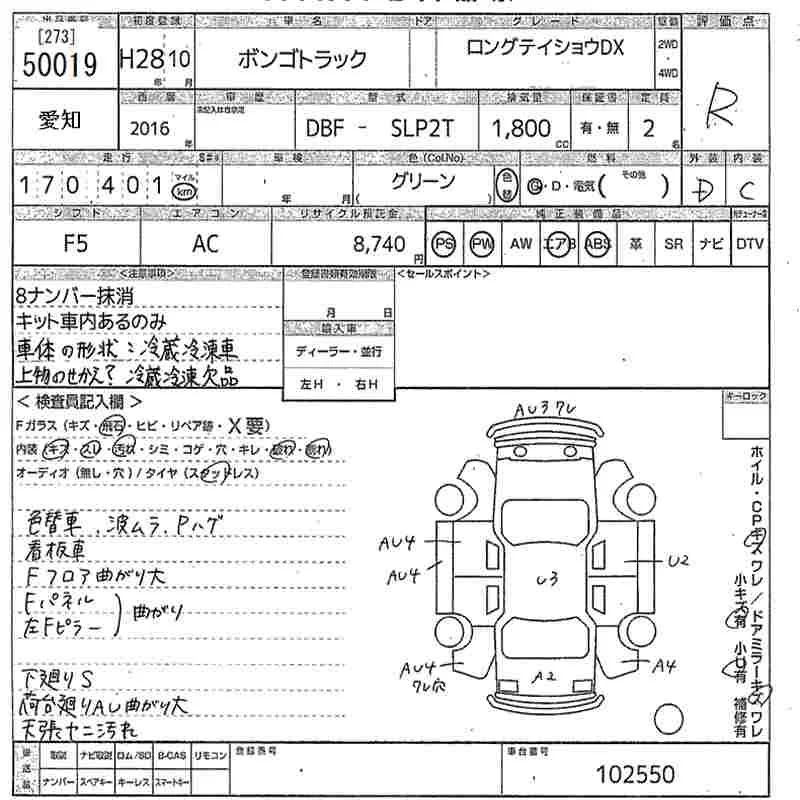 出品番号 初度登録 車名 ドア グレード 駆動 評価点
[273]
50019 H28 10 ボンゴトラック ロングテイショウDX 2WD ・ 4WD
年 月
R
愛知
西暦 車歴 型式 排気量 保証書 定員
2016 年 DBF - SLP2T 1,800 CC 有・無 2 名
走行 車検 色(Col.No) 燃料 外装 内装
170401 マイル km 年 月 グリーン ( ) 色替 G・D・電気( その他 ) D C
シフト エアコン リサイクル預託金 純正装備品
F5 AC 8,740 円 PS PW AW エアB ABS 革 SR ナビ DTV
<注意事項> 登録書類有効期限 <セールスポイント>
8ナンバー抹消
月 日
キット車内あるのみ
輸入車
車体の形状:冷蔵冷凍車
ディーラー・並行
上物のせかえ? 冷蔵冷凍欠品
左H ・ 右H
<検査員記入欄>
キーロック
Fガラス(キズ・飛石・ヒビ・リペア跡・X要)
内装(キズ・スレ・汚れ・シミ・コゲ・穴・キレ・
オーディオ(無し・穴)/タイヤ(スタッドレス)
色替車、波ムラ、Pハゲ
看板車
Fフロア曲がり大
Fパネル
左Fピラー
曲がり
下廻りS
荷台廻りAU曲がり大
天張ヤニ汚れ
AU3ワレ
AU4
AU4
U3
U2
AU4
ワレ穴
A2
A4
ホイル・CPキズワレ/ドアミラーキズワレ
小キズ有 小U有 補修有
発送品 取説 ナビ取説 ロム/SD B-CAS リモコン 登録番号 車台番号
ナンバー スペアキー キーレス スマートキー
102550